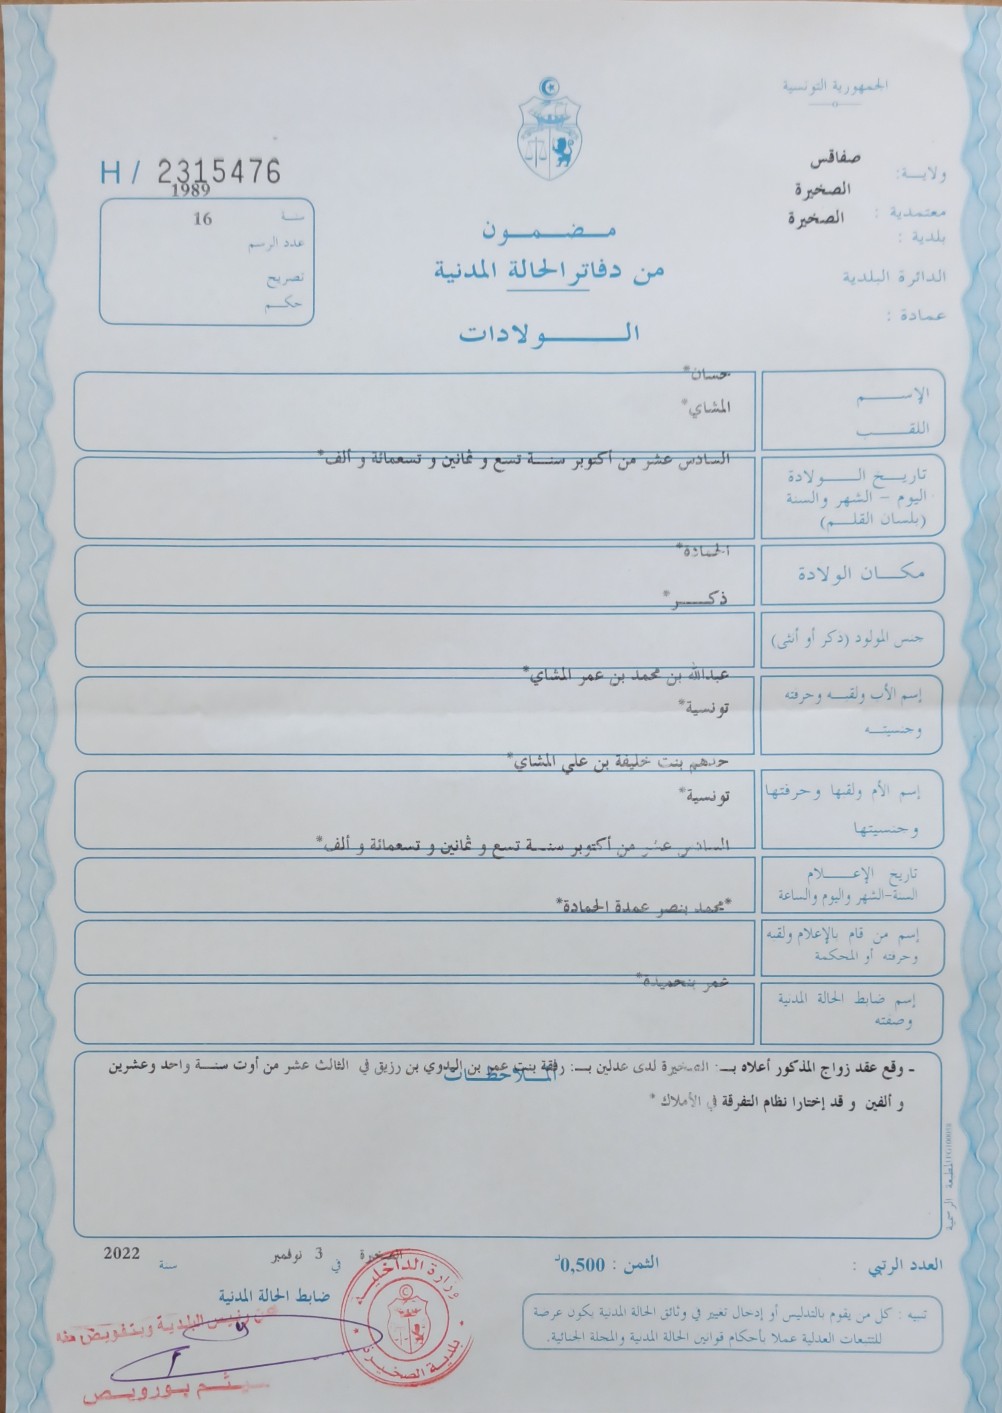 الجمهورية التونسية
ولاية: صفاقس
معتمدية : الصخيرة
بلدية : الصخيرة
الدائرة البلدية
عمادة :
H / 2315476
1989
سنة
16
عدد الرسم
تصريح
حكم
مضمون
من دفاتر الحالة المدنية
الولادات
حسان*
الإسم
المشاي*
اللقب
السادس عشر من أكتوبر سنة تسع و ثمانين و تسعمائة و ألف*
تاريخ الولادة
اليوم - الشهر والسنة
(بلسان القلم)
الحمادة*
مكان الولادة
ذكر*
جنس المولود (ذكر أو أنثى)
عبدالله بن محمد بن عمر المشاي*
إسم الأب ولقبه وحرفته
تونسية*
وجنسيته
بنت خليفة بن علي المشاي*
إسم الأم ولقبها وحرفتها
تونسية*
وجنسيتها
السادس عشر من أكتوبر سنة تسع و ثمانين و تسعمائة و ألف*
تاريخ الإعلام
السنة-الشهر واليوم والساعة
*محمد بنصر عمدة الحمادة*
إسم من قام بالإعلام ولقبه
وحرفته أو المحكمة
عمر بنحميدة*
إسم ضابط الحالة المدنية
وصفته
الملاحظات
- وقع عقد زواج المذكور أعلاه بـ: الصخيرة لدى عدلين بـ: رفقة بنت عمر بن البدوي بن رزيق في الثالث عشر من أوت سنة واحد وعشرين
و ألفين و قد إختارا نظام التفرقة في الأملاك *
المطبعة الرسمية
العدد الرتبي :
الثمن : 0,500د
الصخيرة في 3 نوفمبر سنة 2022
ضابط الحالة المدنية
عن رئيس البلدية وبتفويض منه
بورويص
وزارة الداخلية
بلدية الصخيرة
تنبيه : كل من يقوم بالتدليس أو إدخال تغيير في وثائق الحالة المدنية يكون عرضة
للتتبعات العدلية عملا بأحكام قوانين الحالة المدنية والمجلة الجنائية.